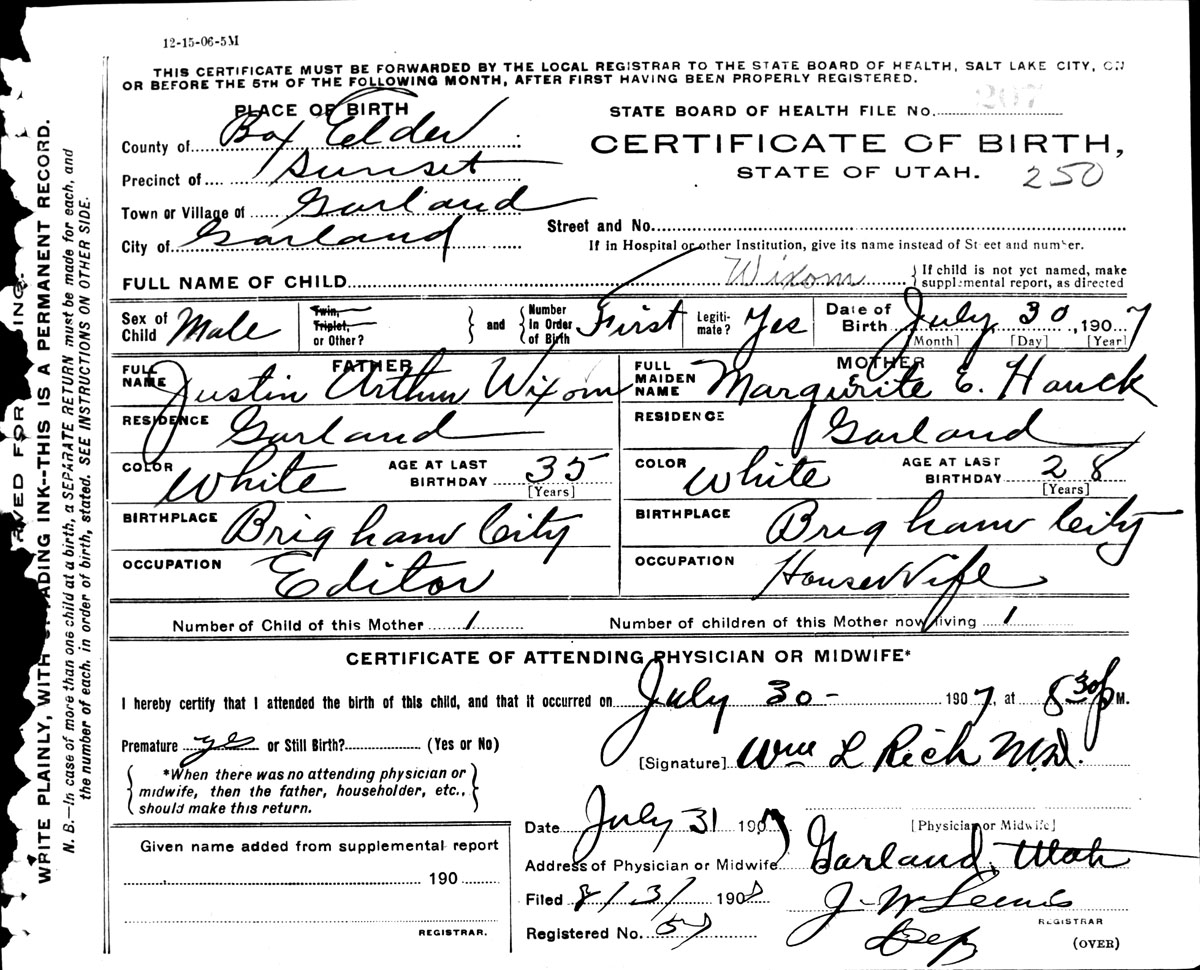 12-15-06-5M
THIS CERTIFICATE MUST BE FORWARDED BY THE LOCAL REGISTRAR TO THE STATE BOARD OF HEALTH, SALT LAKE CITY, ON
OR BEFORE THE 5TH OF THE FOLLOWING MONTH, AFTER FIRST HAVING BEEN PROPERLY REGISTERED.
PLACE OF BIRTH
STATE BOARD OF HEALTH FILE No. 207
County of Box Elder
CERTIFICATE OF BIRTH,
STATE OF UTAH. 250
Precinct of Sunset
Town or Village of Garland
Street and No.
City of Garland
If in Hospital or other Institution, give its name instead of Street and number.
FULL NAME OF CHILD Wixom } If child is not yet named, make
supplemental report, as directed
Sex of Child Male
Twin, Triplet, or Other?
and
Number in Order of Birth First
Legiti-mate? Yes
Date of Birth July 30, 1907
[Month] [Day] [Year]
FATHER
FULL NAME Justin Arthur Wixom
RESIDENCE Garland
COLOR White AGE AT LAST BIRTHDAY 35
[Years]
BIRTHPLACE Brigham City
OCCUPATION Editor
MOTHER
FULL MAIDEN NAME Margurite E. Hauck
RESIDENCE Garland
COLOR White AGE AT LAST BIRTHDAY 28
[Years]
BIRTHPLACE Brigham City
OCCUPATION HouseWife
Number of Child of this Mother 1 Number of children of this Mother now living 1
CERTIFICATE OF ATTENDING PHYSICIAN OR MIDWIFE*
I hereby certify that I attended the birth of this child, and that it occurred on July 30- 1907, at 8 30 P M.
Premature yes or Still Birth? (Yes or No)
[Signature] Wm L Rich M.D.
*When there was no attending physician or
midwife, then the father, householder, etc.,
should make this return.
[Physician or Midwife]
Date July 31 1907
Address of Physician or Midwife Garland, Utah
Given name added from supplemental report
190
REGISTRAR.
Filed 8/3/ 1907 J. W Lewis
REGISTRAR
Registered No. Dep
(OVER)
WRITE PLAINLY, WITH FADING INK--THIS IS A PERMANENT RECORD.
N. B.--In case of more than one child at a birth, a SEPARATE RETURN must be made for each, and
the number of each, in order of birth, stated. SEE INSTRUCTIONS ON OTHER SIDE.